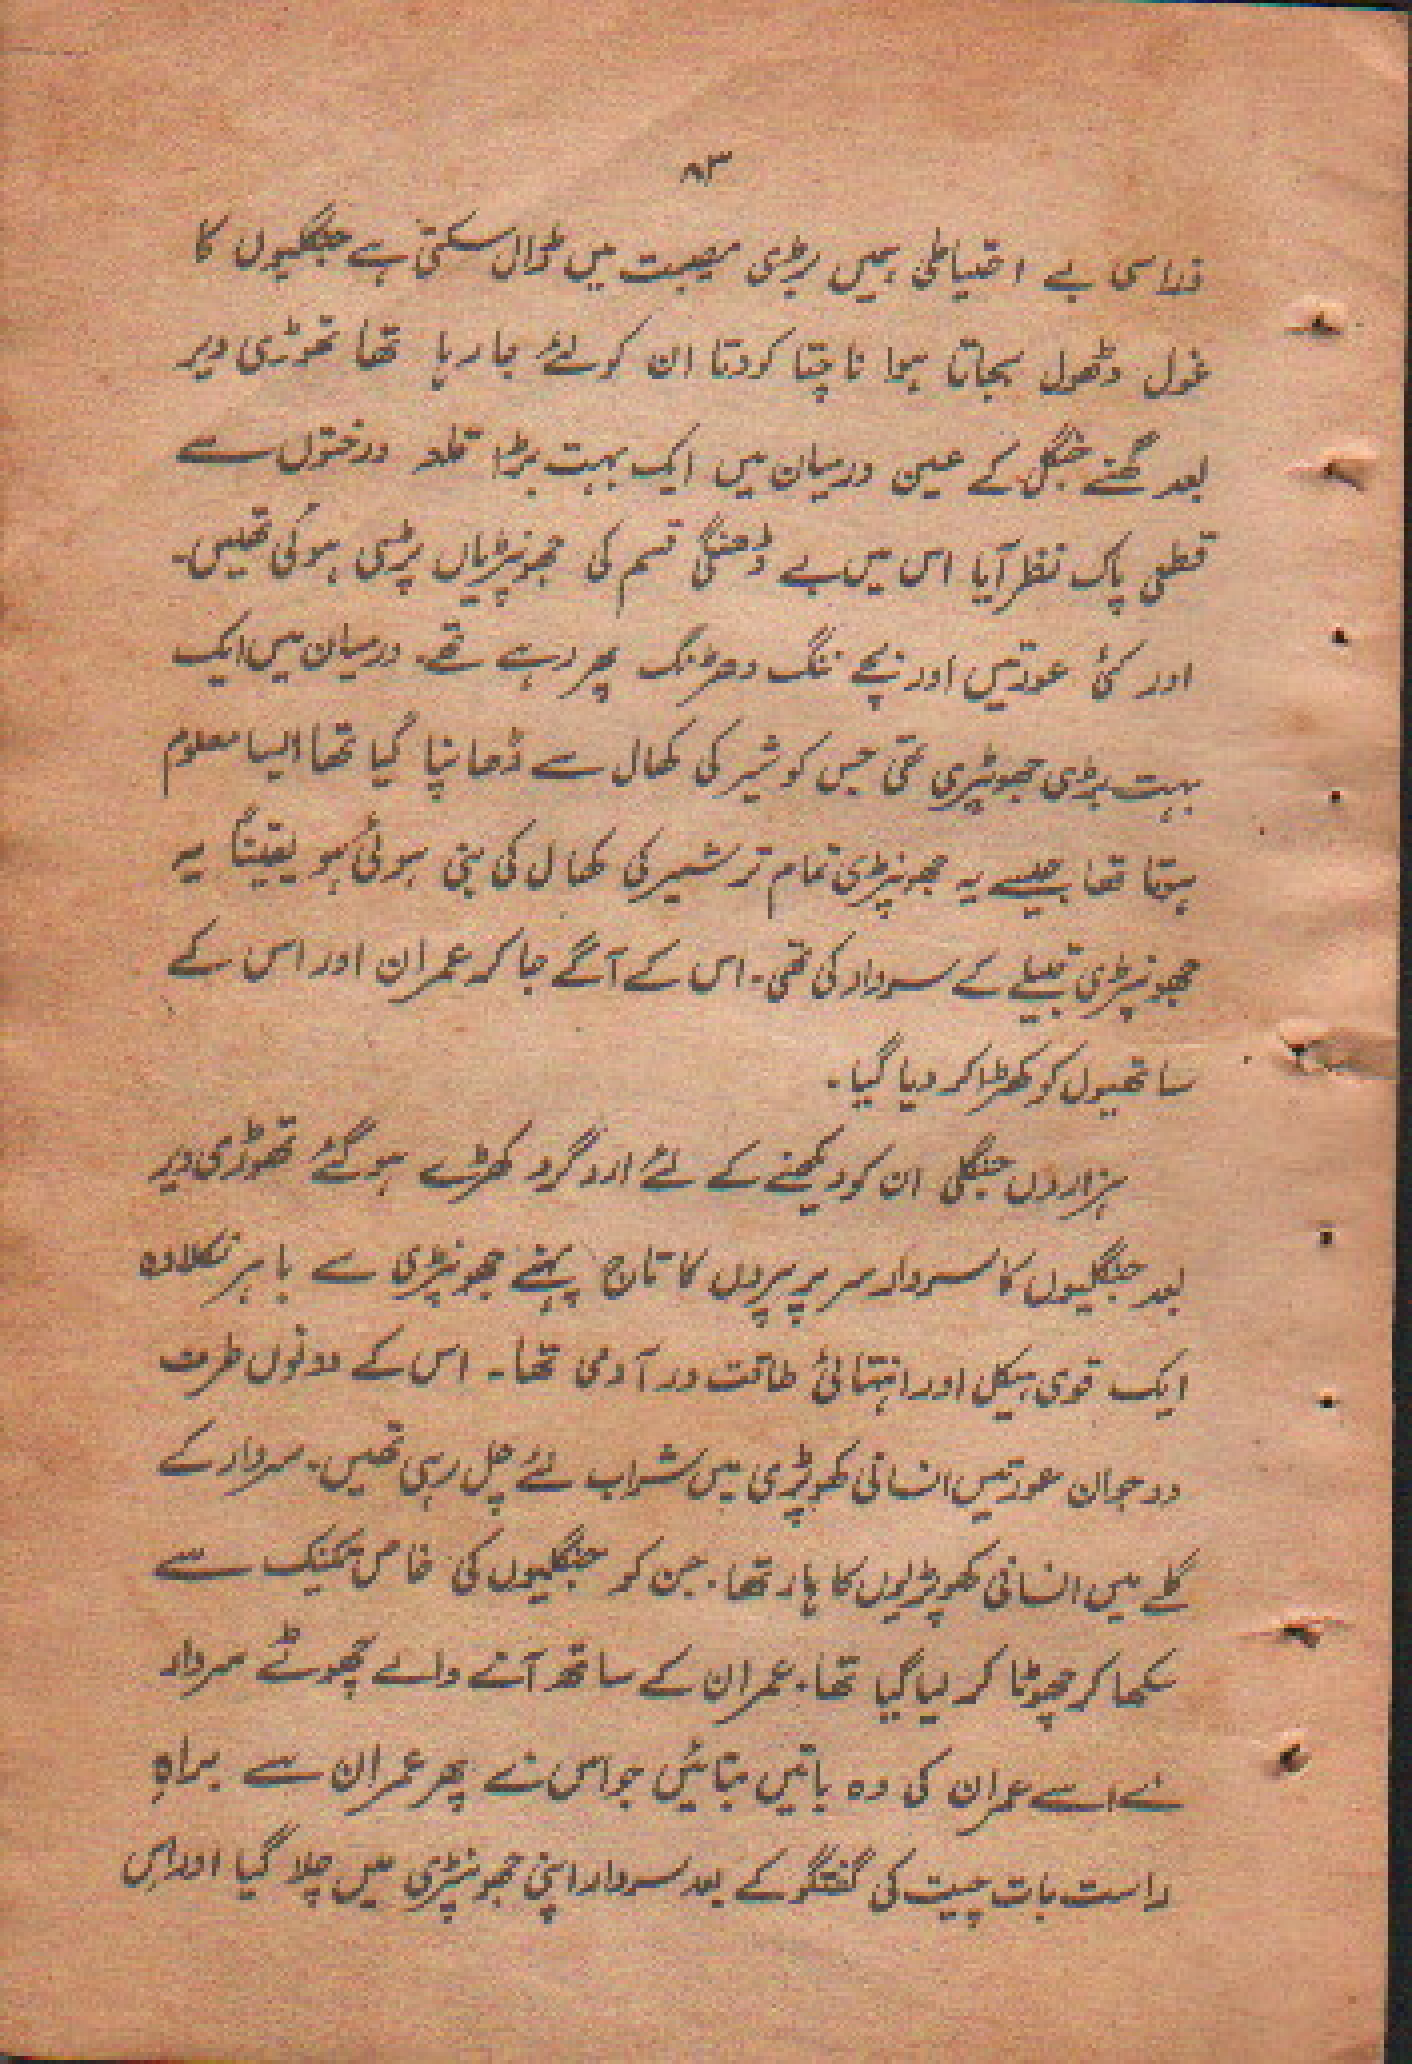 ۸۳
ذرا سی بے احتیاطی ہمیں بڑی مصیبت میں ڈال سکتی ہے جنگلیوں کا
غول ڈھول بجاتا ہوا ناچتا کودتا ان کو لئے جا رہا تھا تھوڑی دیر
بعد گھنے جنگل کے عین درمیان میں ایک بہت بڑا قطعہ درختوں سے
قطعی پاک نظر آیا اس میں بے ڈھنگی قسم کی جھونپڑیاں پڑی ہوئی تھیں۔
اور کئی عورتیں اور بچے ننگ دھڑنگ پھر رہے تھے۔ درمیان میں ایک
بہت بڑی جھونپڑی تھی جس کو شیر کی کھال سے ڈھانپا گیا تھا ایسا معلوم
ہوتا تھا جیسے یہ جھونپڑی تمام تر شیر کی کھال کی بنی ہوئی ہو یقیناً یہ
جھونپڑی قبیلے کے سردار کی تھی۔ اس کے آگے جا کر عمران اور اس کے
ساتھیوں کو کھڑا کر دیا گیا۔
ہزاروں جنگلی ان کو دیکھنے کے لئے ارد گرد کھڑے ہو گئے تھوڑی دیر
بعد جنگلیوں کا سردار سر پر پروں کا تاج پہنے جھونپڑی سے باہر نکلا وہ
ایک قوی ہیکل اور انتہائی طاقت ور آدمی تھا۔ اس کے دونوں طرف
دو جوان عورتیں انسانی کھوپڑی میں شراب لئے چل رہی تھیں۔ سردار کے
گلے میں انسانی کھوپڑیوں کا ہار تھا۔ جن کو جنگلیوں کی خاص تکنیک سے
سکھا کر چھوٹا کر لیا گیا تھا۔ عمران کے ساتھ آنے والے چھوٹے سردار
نے اسے عمران کی وہ باتیں بتائیں جو اس نے پھر عمران سے براہِ
راست بات چیت کی گفتگو کے بعد سردار اپنی جھونپڑی میں چلا گیا اور اس